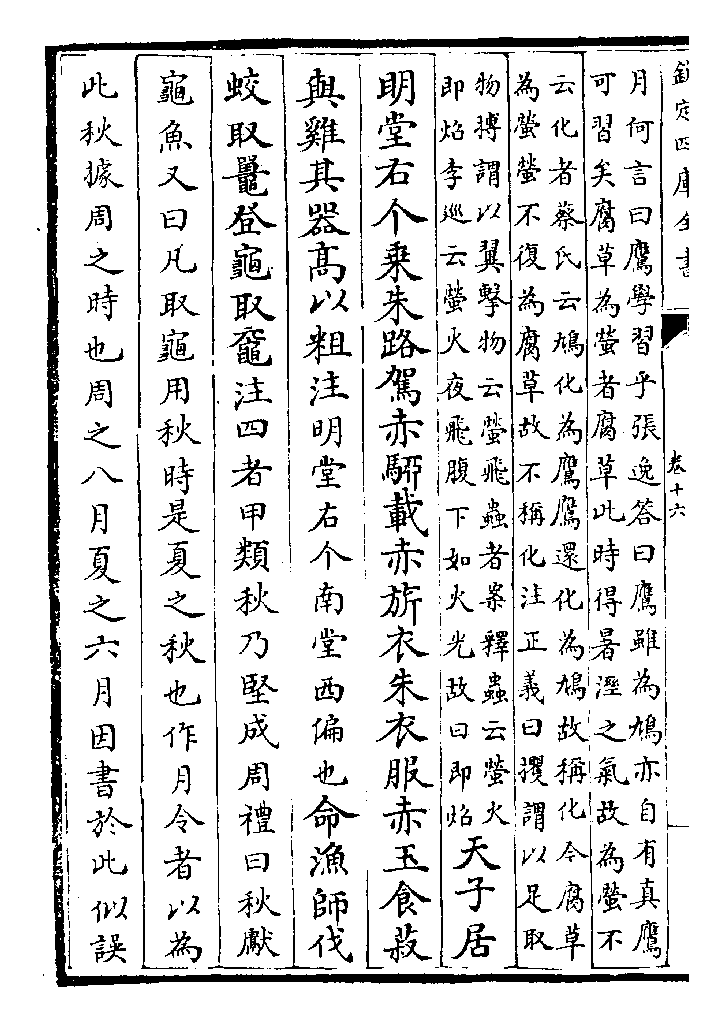 欽定四庫全書
卷十六
月何言曰鷹學習乎張逸答曰鷹雖為鳩亦自有真鷹
可習矣腐草為螢者腐草此時得暑溼之氣故為螢不
云化者蔡氏云鳩化為鷹鷹還化為鳩故稱化今腐草
為螢螢不復為腐草故不稱化注正義曰攫謂以足取
物搏謂以翼擊物云螢飛蟲者案釋蟲云螢火
即炤李巡云螢火夜飛腹下如火光故曰即炤
天子居
明堂右个乗朱路駕赤駵載赤旂衣朱衣服赤玉食菽
與雞其器高以粗注明堂右个南堂西偏也命漁師伐
蛟取鼉登龜取黿注四者甲類秋乃堅成周禮曰秋獻
龜魚又曰凡取龜用秋時是夏之秋也作月令者以為
此秋據周之時也周之八月夏之六月因書於此似誤